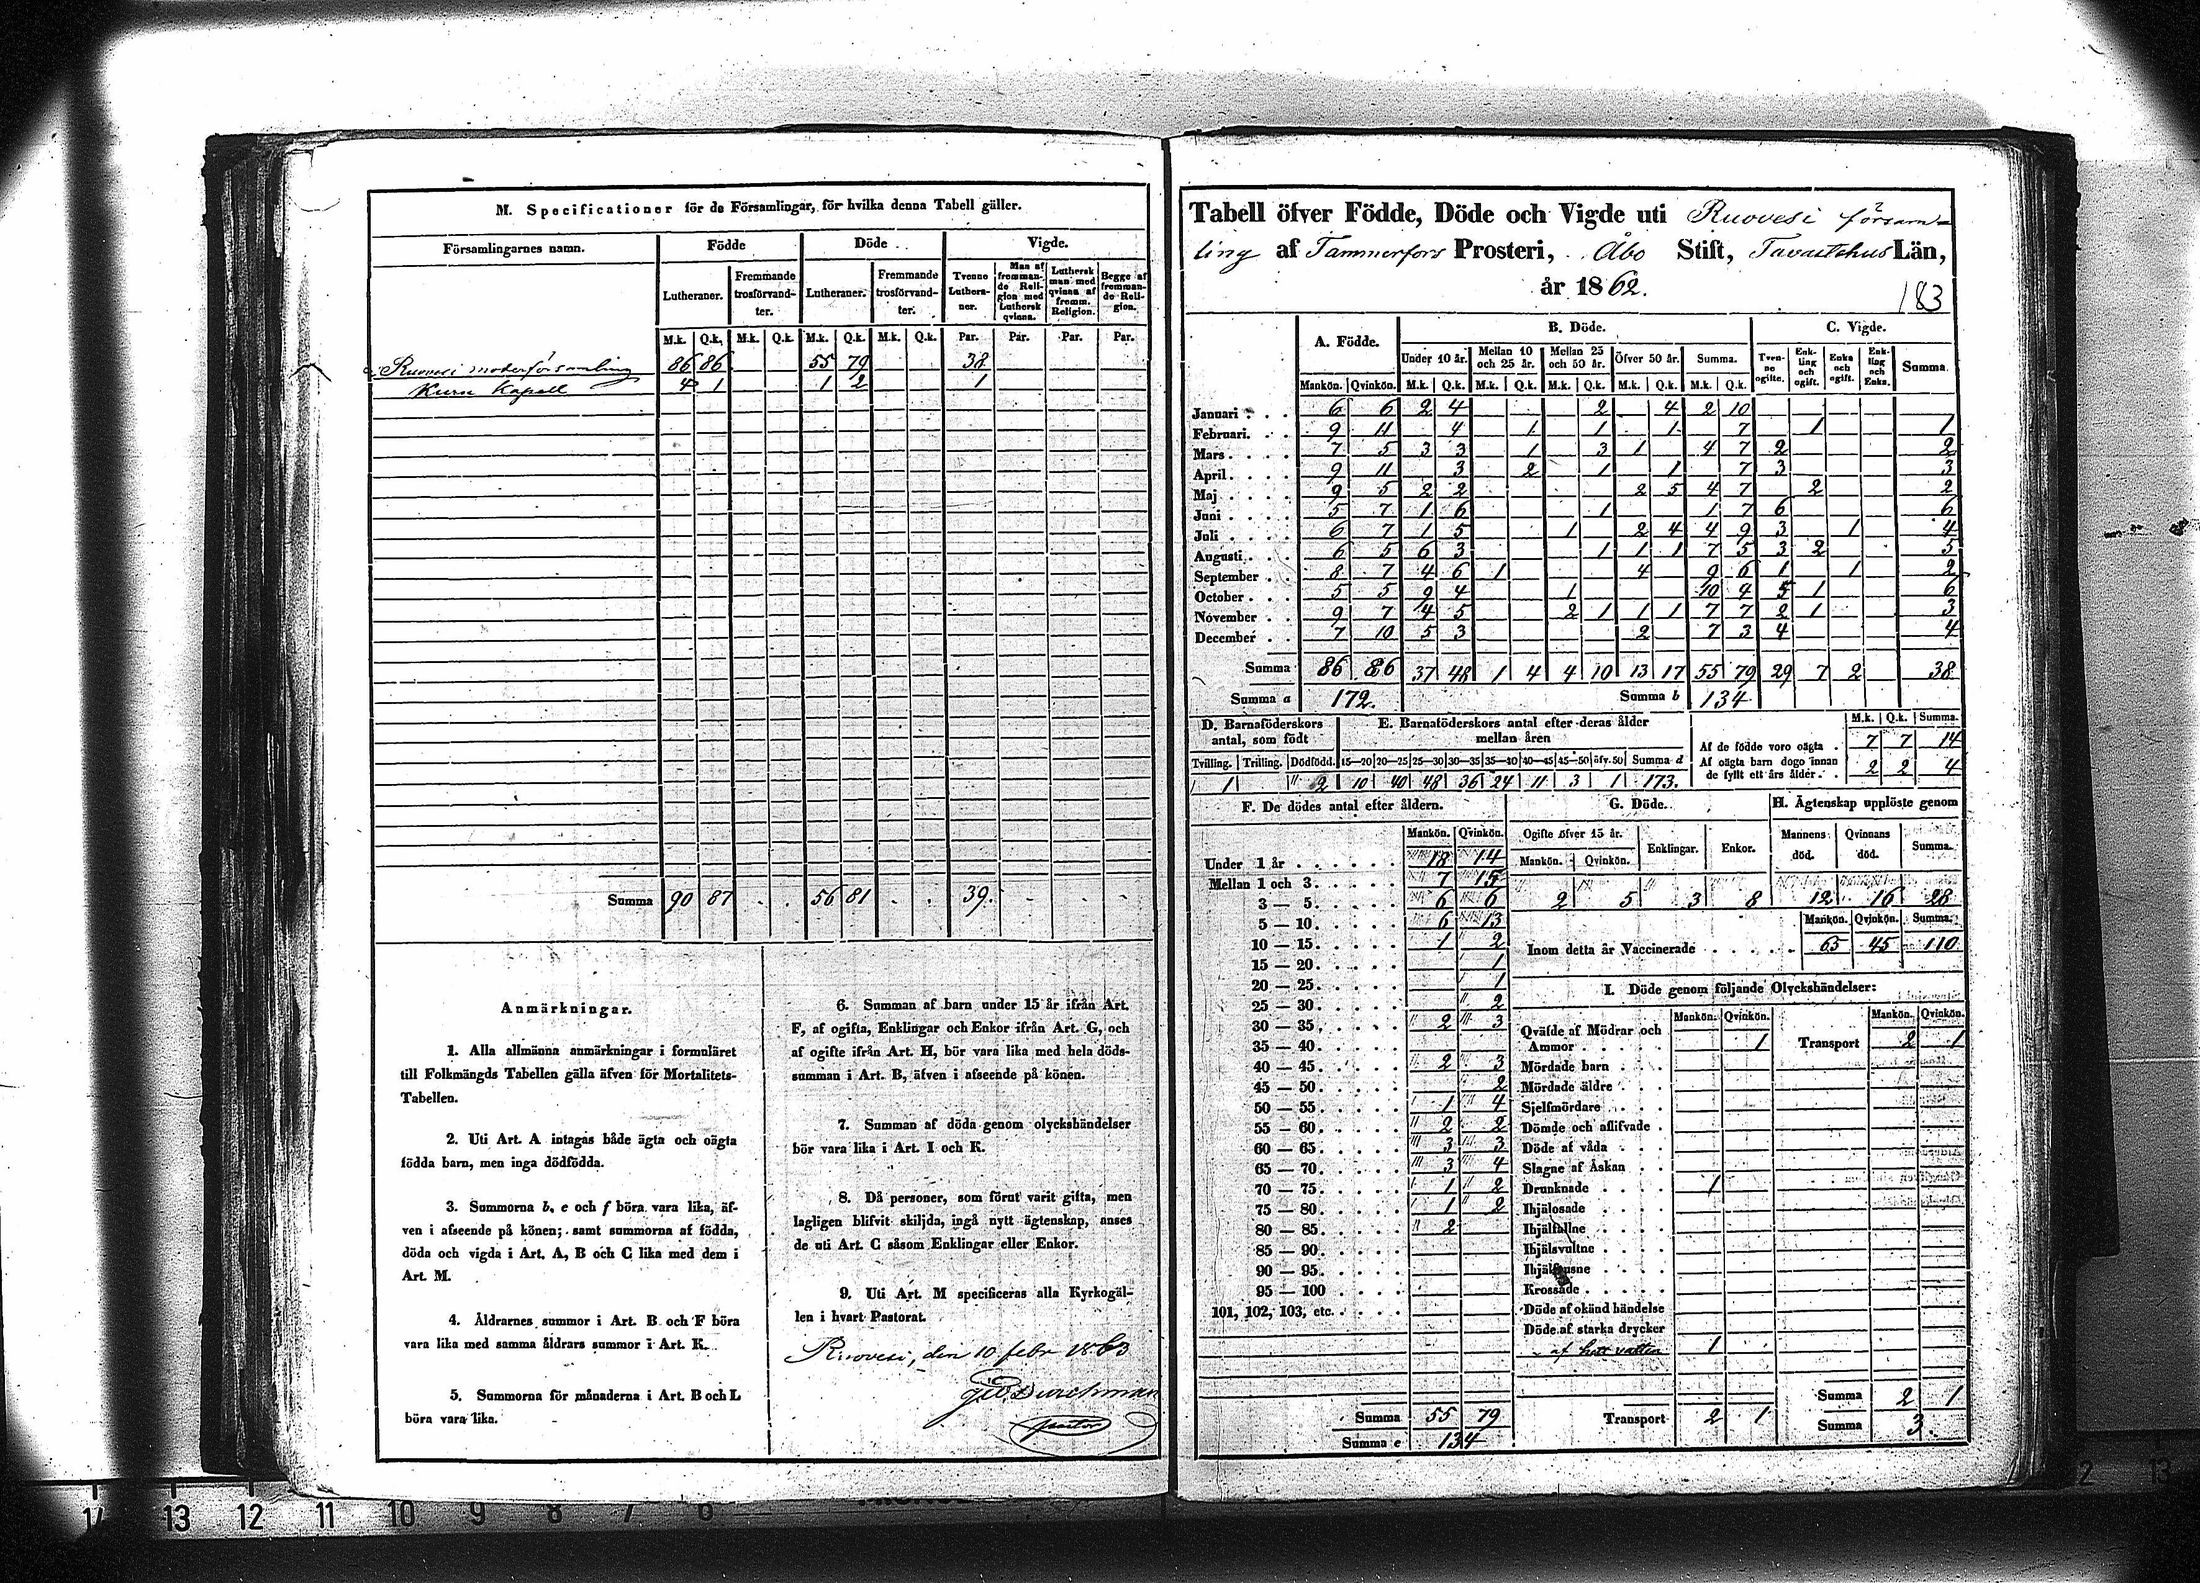 M. Specificationer för de Församlingar, för hvilka denna Tabell gäller.
Församlingarnes namn. Födde Döde Vigde.
Lutheraner. Fremmande trosförvandter. Lutheraner. Fremmande trosförvandter. Tvenne Lutheraner. Man af fremmande Religion med Luthersk qvinna. Luthersk man med qvinna af fremm. Religion. Begge af fremmande Religion.
M.k. Q.k. M.k. Q.k. M.k. Q.k. M.k. Q.k. Par. Par. Par. Par.
Ruovesi moderförsamling 86 86 55 79 38
Kuru Kapell 4 1 1 2 1
Summa 90 87 56 81 39.
Anmärkningar.
1. Alla allmänna anmärkningar i formuläret
till Folkmängds Tabellen gälla äfven för Mortalitets-
Tabellen.
2. Uti Art. A intagas både ägta och oägta
födda barn, men inga dödfödda.
3. Summorna b, e och f böra vara lika, äf-
ven i afseende på könen; samt summorna af födda,
döda och vigda i Art. A, B och C lika med dem i
Art. M.
4. Åldrarnes summor i Art. B och F böra
vara lika med samma åldrars summor i Art. K.
5. Summorna för månaderna i Art. B och L
böra vara lika.
6. Summan af barn under 15 år ifrån Art.
F, af ogifta, Enklingar och Enkor ifrån Art. G, och
af ogifte ifrån Art. H, bör vara lika med hela döds-
summan i Art. B, äfven i afseende på könen.
7. Summan af döda genom olyckshändelser
bör vara lika i Art. I och K.
8. Då personer, som förut varit gifta, men
lagligen blifvit skiljda, ingå nytt ägtenskap, anses
de uti Art. C såsom Enklingar eller Enkor.
9. Uti Art. M specificeras alla Kyrkogäl-
len i hvart Pastorat.
Ruovesi, den 10 febr 1863
pastor
Tabell öfver Födde, Döde och Vigde uti Ruovesi försam-
ling af Tammerfors Prosteri, Åbo Stift, Tavastehus Län,
år 1862.
183
A. Födde. B. Döde. C. Vigde.
Under 10 år. Mellan 10 och 25 år. Mellan 25 och 50 år. Öfver 50 år. Summa. Tvenne ogifte. Enkling och ogift. Enka och ogift. Enkling och Enka. Summa.
Mankön. Qvinkön. M.k. Q.k. M.k. Q.k. M.k. Q.k. M.k. Q.k. M.k. Q.k.
Januari 6 6 2 4 2 4 2 10
Februari. 9 11 4 1 1 1 7 1 1
Mars 7 5 3 3 1 3 1 4 7 2 2
April 9 11 3 2 1 1 7 3 3
Maj 9 5 2 2 2 5 4 7 2 2
Juni 5 7 1 6 1 1 7 6 6
Juli 6 7 1 5 1 2 4 4 9 3 1 4
Augusti 6 5 6 3 1 1 1 7 5 3 2 5
September 8 7 4 6 1 4 9 6 1 1 2
October 5 5 9 4 1 10 4 5 1 6
November 9 7 4 5 2 1 1 1 7 7 2 1 3
December 7 10 5 3 2 7 3 4 4
Summa 86 86 37 48 1 4 4 10 13 17 55 79 29 7 2 38
Summa a 172. Summa b 134
D. Barnaföderskors antal, som födt
Tvilling. Trilling. Dödfödd.
1 2
E. Barnaföderskors antal efter deras ålder mellan åren
15—20 20—25 25—30 30—35 35—40 40—45 45—50 öfv. 50 Summa d
10 40 48 36 24 11 3 1 173.
M.k. Q.k. Summa.
Af de födde voro oägta 7 7 14
Af oägta barn dogo innan
de fyllt ett års ålder 2 2 4
F. De dödes antal efter åldern.
Mankön. Qvinkön.
Under 1 år 18 14
Mellan 1 och 3 7 15
3 — 5 6 6
5 — 10 6 13
10 — 15 1 2
15 — 20 1
20 — 25 1
25 — 30 2
30 — 35 2 3
35 — 40
40 — 45 2 3
45 — 50 2
50 — 55 1 4
55 — 60 2 2
60 — 65 3 3
65 — 70 3 4
70 — 75 1 2
75 — 80 1 2
80 — 85 2
85 — 90
90 — 95
95 — 100
101, 102, 103, etc.
Summa 55 79
Summa e 134
G. Döde.
Ogifte öfver 15 år. Enklingar. Enkor.
Mankön. Qvinkön.
2 5 3 8
H. Ägtenskap upplöste genom
Mannens död. Qvinnans död. Summa.
12 16 28
Mankön. Qvinkön. Summa.
Inom detta år Vaccinerade 65 45 110
I. Döde genom följande Olyckshändelser:
Mankön. Qvinkön. Mankön. Qvinkön.
Qväfde af Mödrar och
Ammor 1 Transport 2 1
Mördade barn
Mördade äldre
Sjelfmördare
Dömde och aflifvade
Döde af våda
Slagne af Åskan
Drunknade 1
Ihjälosade
Ihjälfallne
Ihjälsvultne
Ihjälfrusne
Krossade
Döde af okänd händelse
Döde af starka drycker
af hett vatten 1
Summa 2 1
Transport 2 1 Summa 3.
14 13 12 11 10 9 8 7 6
2 13